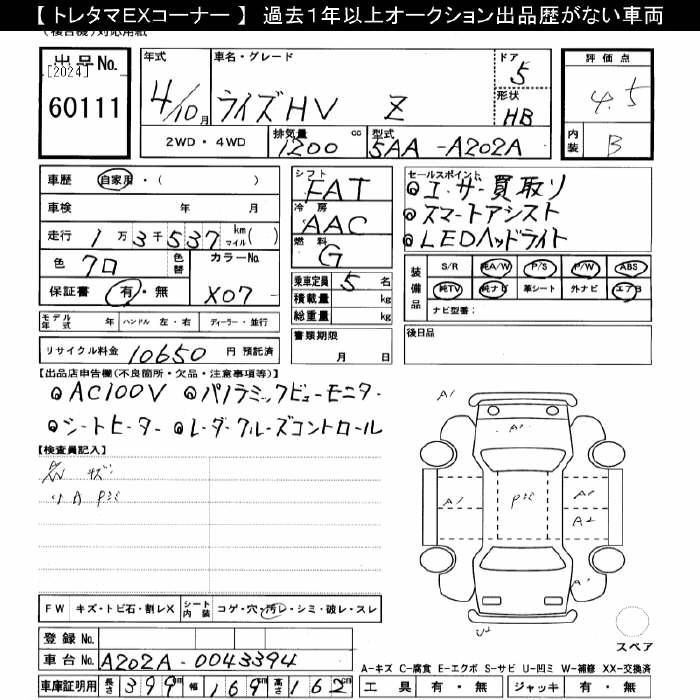 【 トレタマEXコーナー 】 過去1年以上オークション出品歴がない車両
出品No.
[2024]
60111
年式
4/10月
車名・グレード
ライズHV Z
ドア
5
形状
HB
評価点
4.5
内装
B
2WD・4WD
排気量
1200 cc
型式
5AA-A202A
車歴 自家用・( )
車検 年 月
走行 1万3千537 km マイル( )
色 クロ 色替
カラーNo.
X07
保証書 有・無
シフト
FAT
冷房
AAC
燃料
G
乗車定員 5 名
積載量 kg
総重量 kg
書類期限
月 日
セールスポイント
◎エーサー買取り
◎スマートアシスト
◎LEDヘッドライト
装備品
S/R 純A/W P/S P/W ABS
純TV 純ナビ 革シート 外ナビ エアB
ナビ型番:
後日品
モデル年式 年 ハンドル 左・右 ディーラー・並行
リサイクル料金 10650 円 預託済
【出品店申告欄(不良箇所・欠品・注意事項等)】
◎AC100V ◎パノラミックビューモニター
◎シートヒーター ◎レーダークルーズコントロール
【検査員記入】
A1
A1
A1
A1
A2
FW キズ・トビ石・割レX シート内装 コゲ・穴・汚レ・シミ・破レ・スレ
スペア
登録No.
車台No. A202A-0043394
A-キズ C-腐食 E-エクボ S-サビ U-凹ミ W-補修 XX-交換済
車庫証明用 長さ 399 cm 幅 169 cm 高さ 162 cm
工具 有・無 ジャッキ 有・無